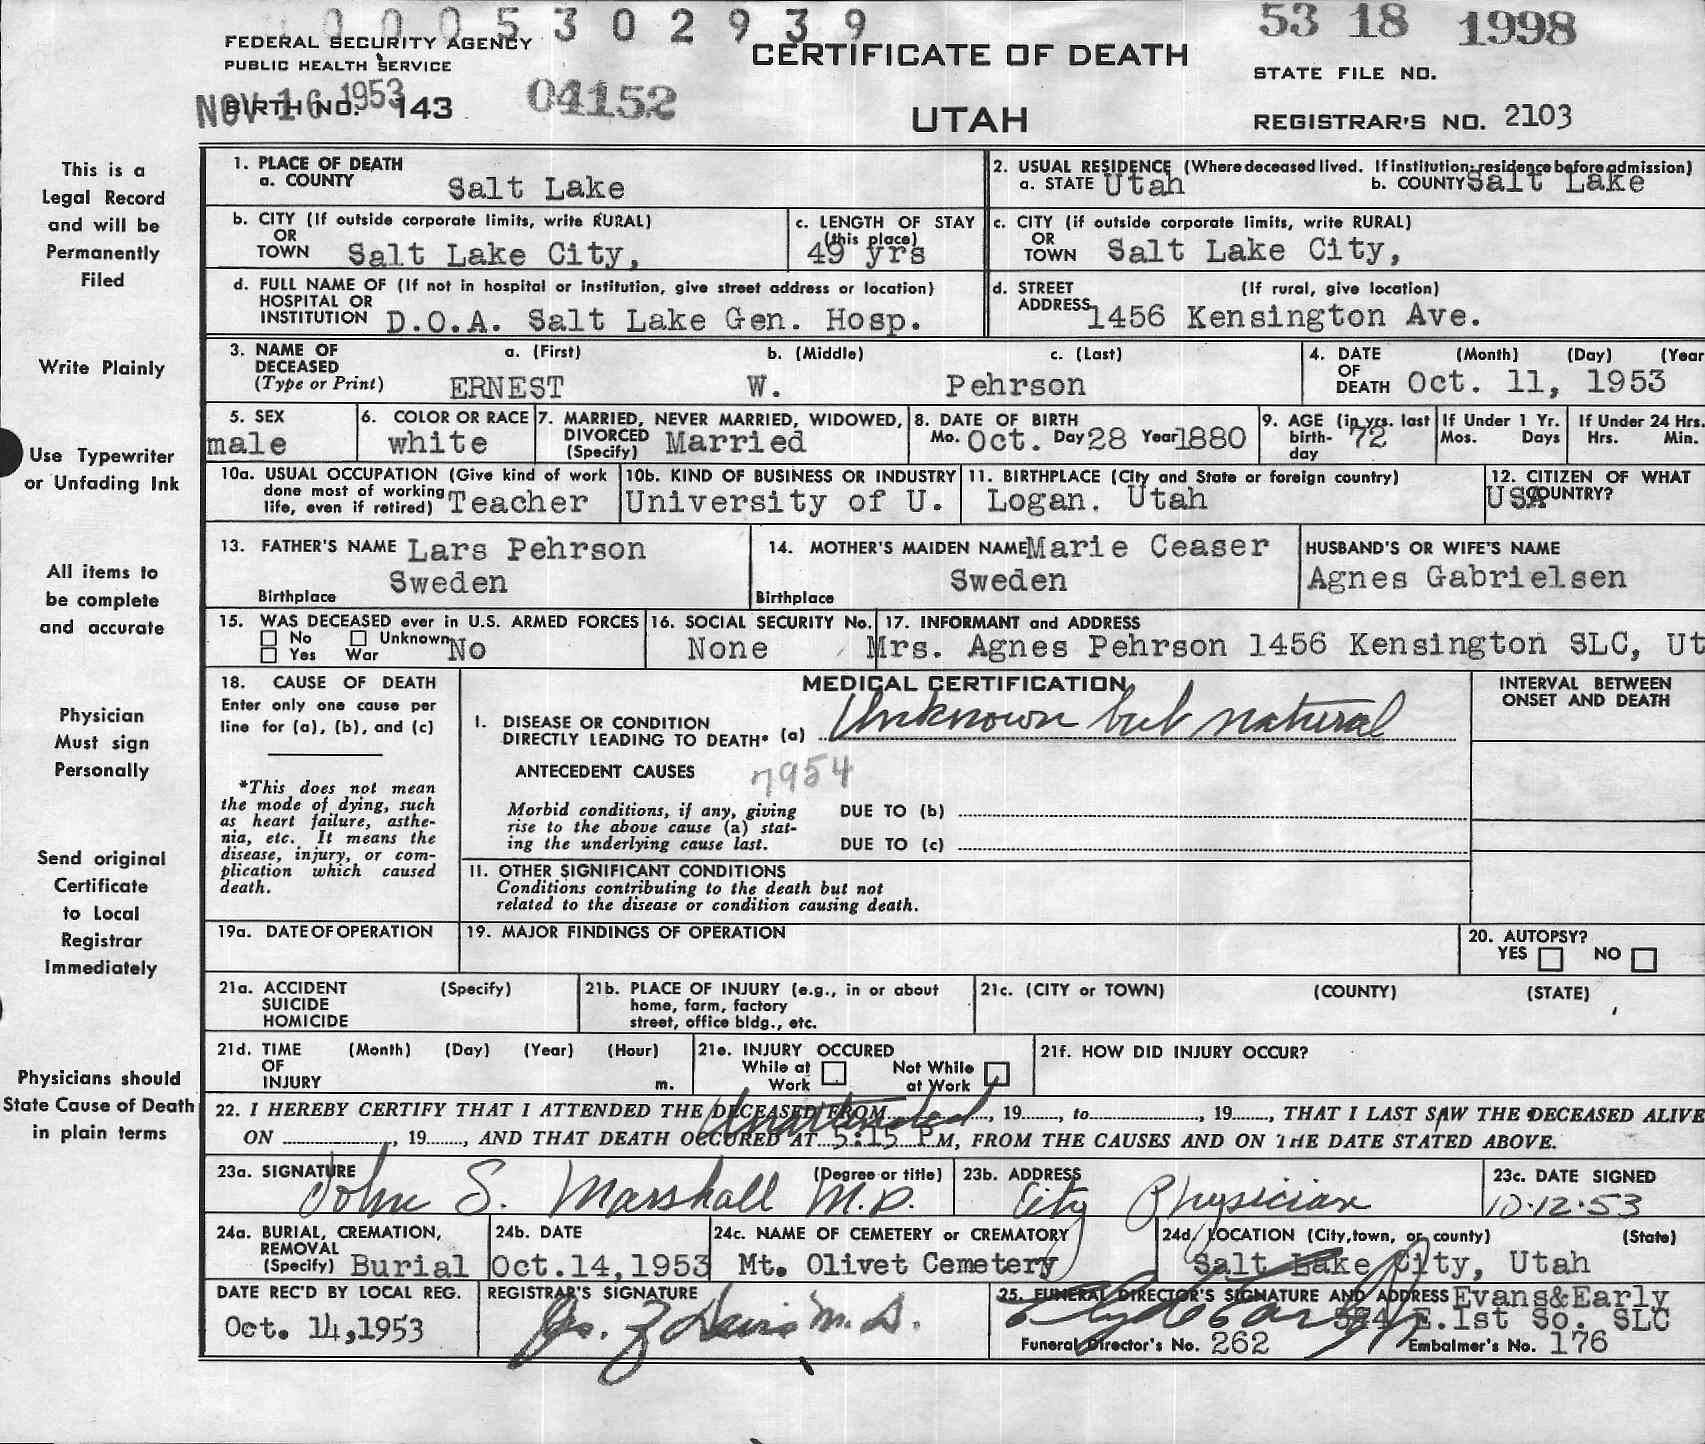 0005302939
53 18 1998
FEDERAL SECURITY AGENCY
PUBLIC HEALTH SERVICE
CERTIFICATE OF DEATH
STATE FILE NO.
NOV 16 1953
BIRTH NO. 143
04152
UTAH
REGISTRAR'S NO. 2103
This is a
Legal Record
and will be
Permanently
Filed
Write Plainly
Use Typewriter
or Unfading Ink
All items to
be complete
and accurate
Physician
Must sign
Personally
Send original
Certificate
to Local
Registrar
Immediately
Physicians should
State Cause of Death
in plain terms
1. PLACE OF DEATH
a. COUNTY Salt Lake
2. USUAL RESIDENCE (Where deceased lived. If institution: residence before admission)
a. STATE Utah b. COUNTY Salt Lake
b. CITY (If outside corporate limits, write RURAL)
OR
TOWN Salt Lake City,
c. LENGTH OF STAY
(this place)
49 yrs
c. CITY (if outside corporate limits, write RURAL)
OR
TOWN Salt Lake City,
d. FULL NAME OF (If not in hospital or institution, give street address or location)
HOSPITAL OR
INSTITUTION D.O.A. Salt Lake Gen. Hosp.
d. STREET (If rural, give location)
ADDRESS 1456 Kensington Ave.
3. NAME OF DECEASED a. (First) b. (Middle) c. (Last)
(Type or Print) ERNEST W. Pehrson
4. DATE (Month) (Day) (Year
OF
DEATH Oct. 11, 1953
5. SEX
male
6. COLOR OR RACE
white
7. MARRIED, NEVER MARRIED, WIDOWED,
DIVORCED
(Specify) Married
8. DATE OF BIRTH
Mo. Oct. Day 28 Year 1880
9. AGE (in yrs. last
birth-
day 72
If Under 1 Yr.
Mos. Days
If Under 24 Hrs.
Hrs. Min.
10a. USUAL OCCUPATION (Give kind of work
done most of working
life, even if retired) Teacher
10b. KIND OF BUSINESS OR INDUSTRY
University of U.
11. BIRTHPLACE (City and State or foreign country)
Logan. Utah
12. CITIZEN OF WHAT
COUNTRY?
USA
13. FATHER'S NAME Lars Pehrson
Birthplace Sweden
14. MOTHER'S MAIDEN NAME Marie Ceaser
Birthplace Sweden
HUSBAND'S OR WIFE'S NAME
Agnes Gabrielsen
15. WAS DECEASED ever in U.S. ARMED FORCES
No Unknown No
Yes War
16. SOCIAL SECURITY No.
None
17. INFORMANT and ADDRESS
Mrs. Agnes Pehrson 1456 Kensington SLC, Ut
18. CAUSE OF DEATH
Enter only one cause per
line for (a), (b), and (c)
*This does not mean
the mode of dying, such
as heart failure, asthe-
nia, etc. It means the
disease, injury, or com-
plication which caused
death.
MEDICAL CERTIFICATION
INTERVAL BETWEEN
ONSET AND DEATH
I. DISEASE OR CONDITION
DIRECTLY LEADING TO DEATH* (a) Unknown but natural
ANTECEDENT CAUSES 7954
Morbid conditions, if any, giving
rise to the above cause (a) stat-
ing the underlying cause last.
DUE TO (b)
DUE TO (c)
II. OTHER SIGNIFICANT CONDITIONS
Conditions contributing to the death but not
related to the disease or condition causing death.
19a. DATE OF OPERATION
19. MAJOR FINDINGS OF OPERATION
20. AUTOPSY?
YES NO
21a. ACCIDENT (Specify)
SUICIDE
HOMICIDE
21b. PLACE OF INJURY (e.g., in or about
home, farm, factory
street, office bldg., etc.
21c. (CITY or TOWN) (COUNTY) (STATE)
21d. TIME (Month) (Day) (Year) (Hour)
OF
INJURY m.
21e. INJURY OCCURED
While at
Work
Not While
at Work
21f. HOW DID INJURY OCCUR?
22. I HEREBY CERTIFY THAT I ATTENDED THE DECEASED FROM Unattended, 19......, to............, 19......, THAT I LAST SAW THE DECEASED ALIVE
ON ............, 19......, AND THAT DEATH OCCURED AT 5:15 P M, FROM THE CAUSES AND ON THE DATE STATED ABOVE.
23a. SIGNATURE (Degree or title)
John S. Marshall M.D.
23b. ADDRESS
City Physician
23c. DATE SIGNED
10-12-53
24a. BURIAL, CREMATION,
REMOVAL
(Specify) Burial
24b. DATE
Oct.14,1953
24c. NAME OF CEMETERY or CREMATORY
Mt. Olivet Cemetery
24d. LOCATION (City, town, or county) (State)
Salt Lake City, Utah
DATE REC'D BY LOCAL REG.
Oct. 14,1953
REGISTRAR'S SIGNATURE
M.D.
25. FUNERAL DIRECTOR'S SIGNATURE AND ADDRESS Evans&Early
574 E.1st So. SLC
Funeral Director's No. 262 Embalmer's No. 176